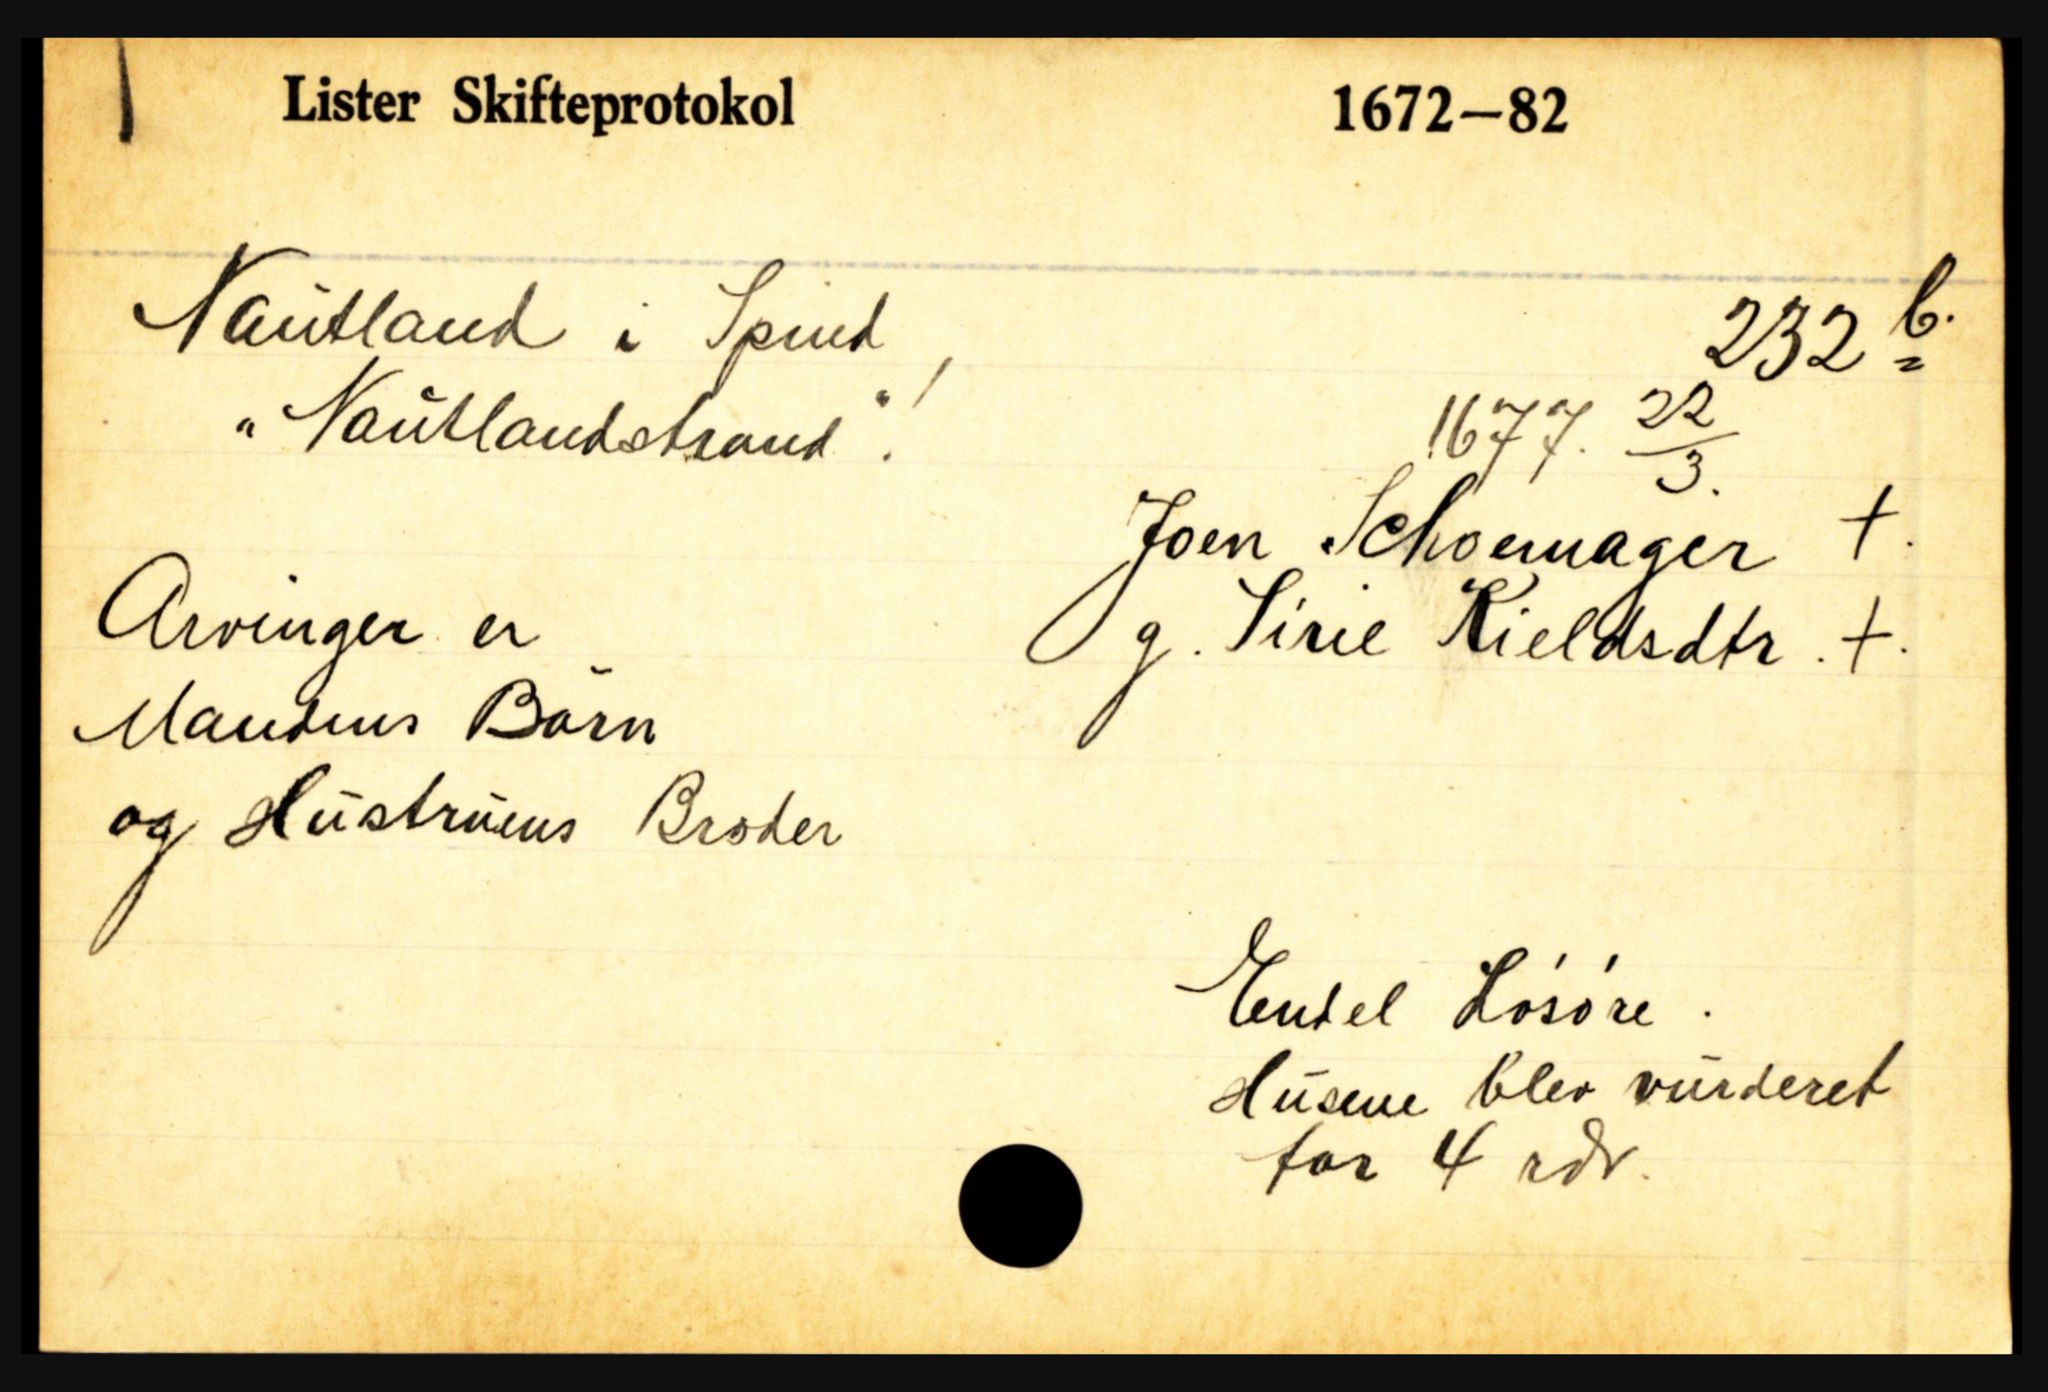 Lister Skifteprotokol 1672-82
Nautland i Spind
232 b.
"Nautlandstrand"!
1677. 22/3.
Joen Schoemager +.
g. Sirie Kieldsdtr. +.
Arvinger er
Mandens Börn
og Hustruens Broder
Endel Lósóre.
Husene blev vurderet
for 4 rdr.